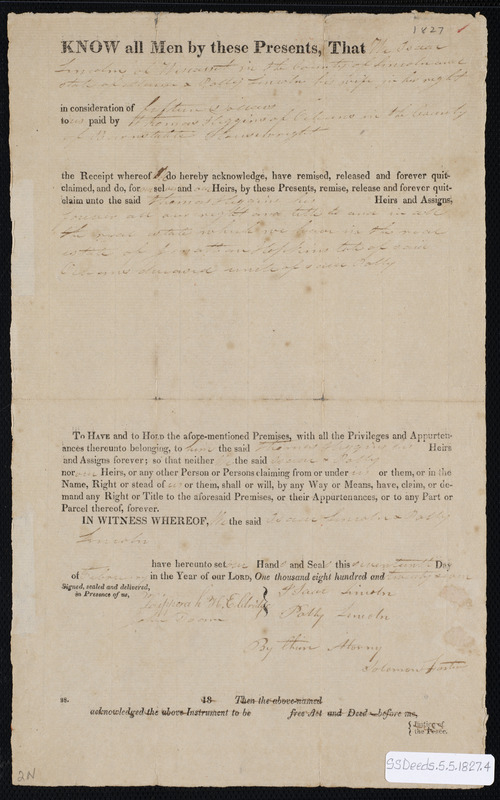 1827
KNOW all Men by these Presents, That We Isaac
Lincoln of in the County of Lincoln and
State of & Polly Lincoln his wife in her right
in consideration of fifteen Dollars
to us paid by Thomas Higgins of Orleans in the County
of Barnstable
the Receipt whereof We do hereby acknowledge, have remised, released and forever quit-
claimed, and do, for our selves and our Heirs, by these Presents, remise, release and forever quit-
claim unto the said Thomas Higgins his Heirs and Assigns,
forever all our right and title to and in all
the real estate which we have in the real
estate of Hopkins late of said
Orleans deceased uncle of said Polly
To Have and to Hold the afore-mentioned Premises, with all the Privileges and Appurten-
ances thereunto belonging, to him the said Thomas Higgins his Heirs
and Assigns forever; so that neither We the said Isaac & Polly
nor our Heirs, or any other Person or Persons claiming from or under us or them, or in the
Name, Right or stead of us or them, shall or will, by any Way or Means, have, claim, or de-
mand any Right or Title to the aforesaid Premises, or their Appurtenances, or to any Part or
Parcel thereof, forever.
IN WITNESS WHEREOF, We the said Isaac Lincoln & Polly
Lincoln
have hereunto set our Hands and Seals this Day
of February in the Year of our Lord, One thousand eight hundred and twenty seven
Signed, sealed and delivered,
in Presence of us,
Isaac Lincoln
Polly Lincoln
By their Attorney
Solomon
ss. 18 Then the above-named
acknowledged the above Instrument to be free Act and Deed—before me,
Justice of
the Peace.
2N
SSDeeds.5.5.1827.4